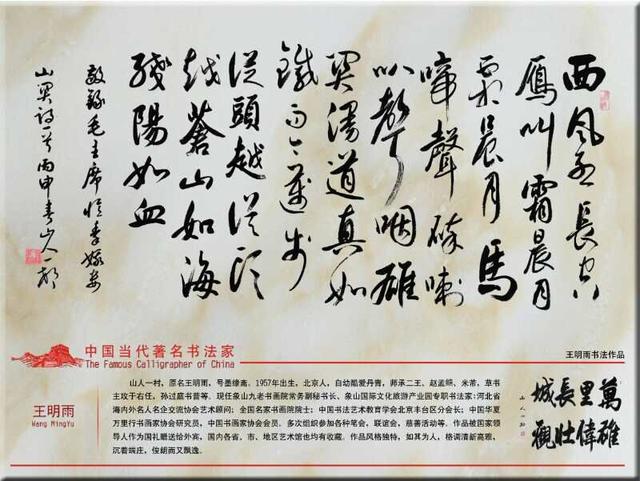 西风烈長空
雁叫霜晨月
霜晨月馬
啼聲碎喇
叭聲咽雄
関漫道真如
鐵而今邁步
從頭越從頭
越蒼山如海
殘陽如血
敬録毛主席憶秦娥娄
山関詞一首丙申春山人一村
中国当代著名书法家
The Famous Calligrapher of China
王明雨书法作品
王明雨
Wang MingYu
山人一村，原名王明雨，号墨缘斋，1957年出生，北京人，自幼酷爱丹青，师承二王、赵孟頫、米芾，草书
主攻于右任、孙过庭书普等。现任象山九老书画院常务副秘书长、象山国际文化旅游产业园专职书法家；河北省
海内外名人名企交流协会艺术顾问；全国名家书画院院士；中国书法艺术教育学会北京丰台区分会长；中国华夏
万里行书画家协会研究员，中国书画家协会会员。多次组织参加各种笔会，联谊会，慈善活动等。作品被国家领
导人作为国礼赠送给外宾，国内各省、市、地区艺术馆也均有收藏。作品风格独特，如其为人，格调清新高雅，
沉着端庄，俊朗而又飘逸。
萬里長城
雄偉壯觀
山人一村